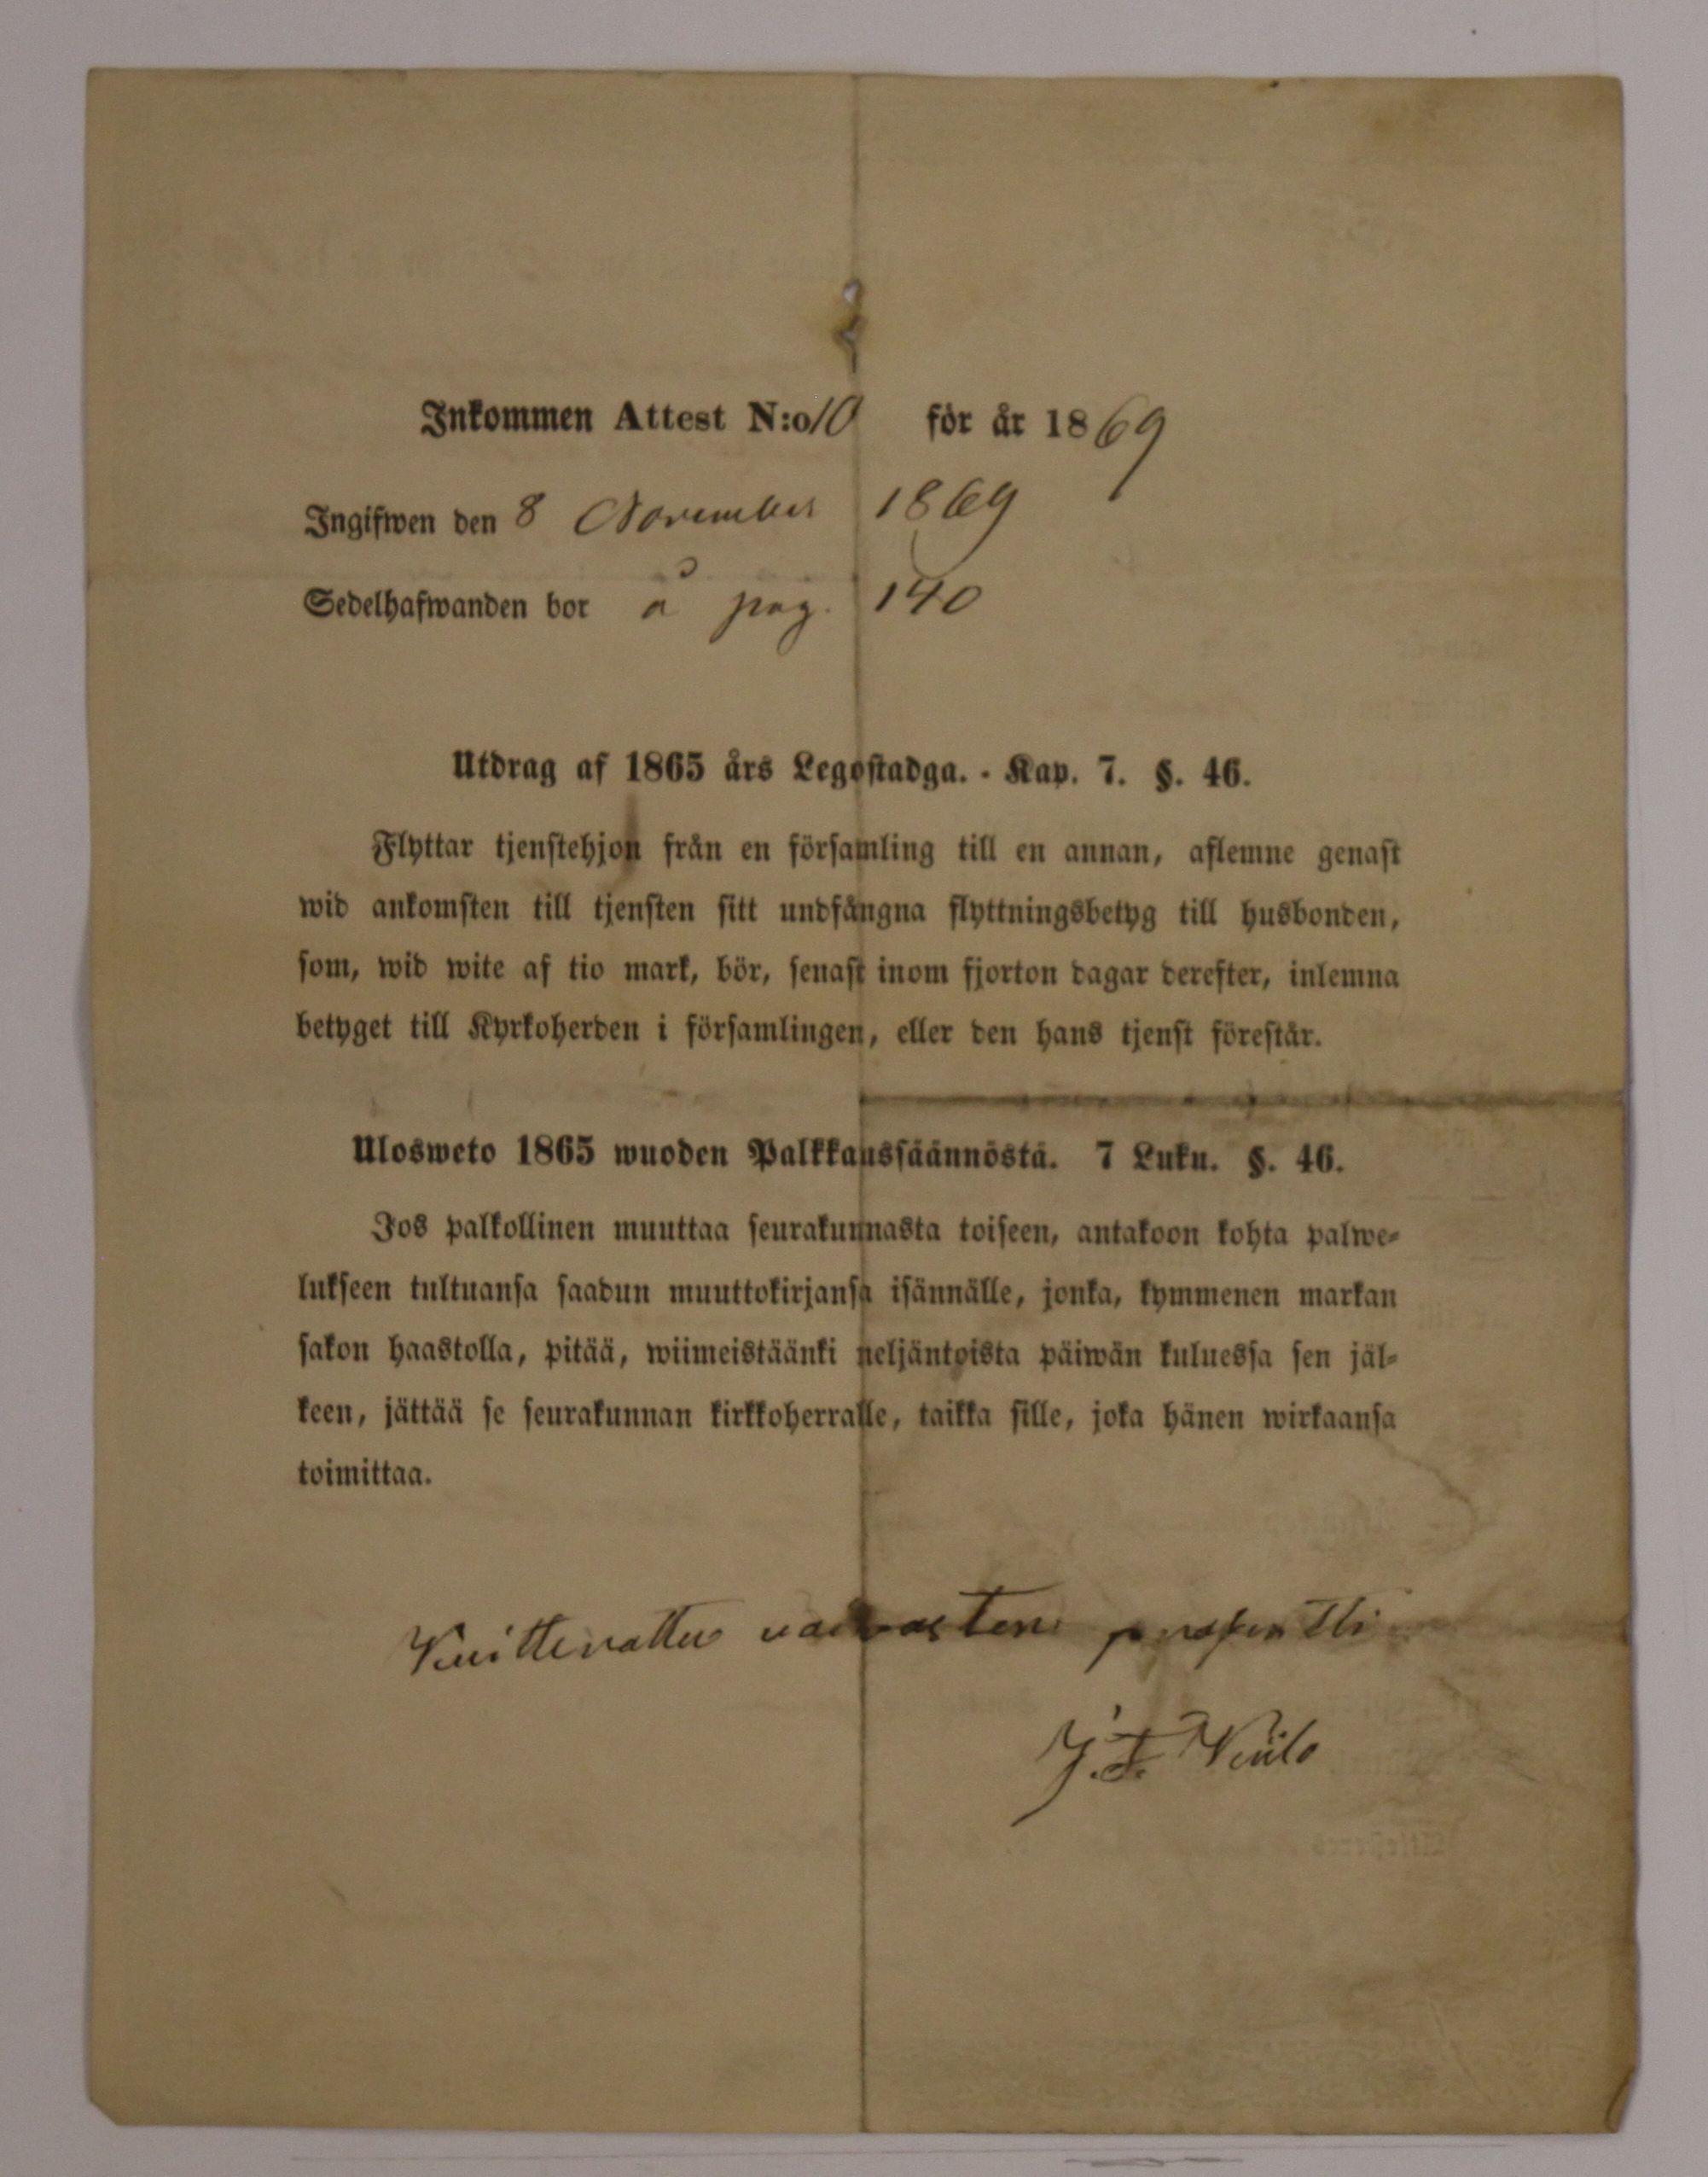 Inkommen Attest N:o 10 för år 1869
Ingifwen den 8 November 1869
Sedelhafwanden bor å pag. 140
Utdrag af 1865 års Legostadga. - Kap. 7. §. 46.
Flyttar tjenstehjon från en församling till en annan, aflemne genast
wid ankomsten till tjensten sitt undfångna flyttningsbetyg till husbonden,
som, wid wite af tio mark, bör, senast inom fjorton dagar derefter, inlemna
betyget till Kyrkoherden i församlingen, eller den hans tjenst förestår.
Ulosweto 1865 wuoden Palkkaussäännöstä. 7 Luku. §. 46.
Jos palkollinen muuttaa seurakunnasta toiseen, antakoon kohta palwe-
lukseen tultuansa saadun muuttokirjansa isännälle, jonka, kymmenen markan
sakon haastolla, pitää, wiimeistäänki neljäntoista päiwän kuluessa sen jäl-
keen, jättää se seurakunnan kirkkoherralle, taikka sille, joka hänen wirkaansa
toimittaa.
J. F.